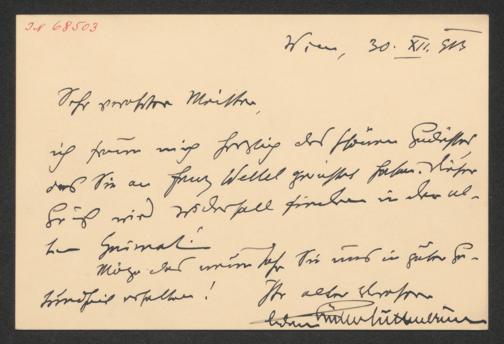 IN 68503
Wien, 30. XII. 913
Sehr verehrter Meister,
ich freue mich herzlich des schönen Gedichtes
das Sie an Franz gerichtet haben. Dieser
Gruß wird Widerhall finden in der al-
ten Heimat!
Möge das neue Jahr Sie uns in guter Ge-
sundheit erhalten!
Ihr alter